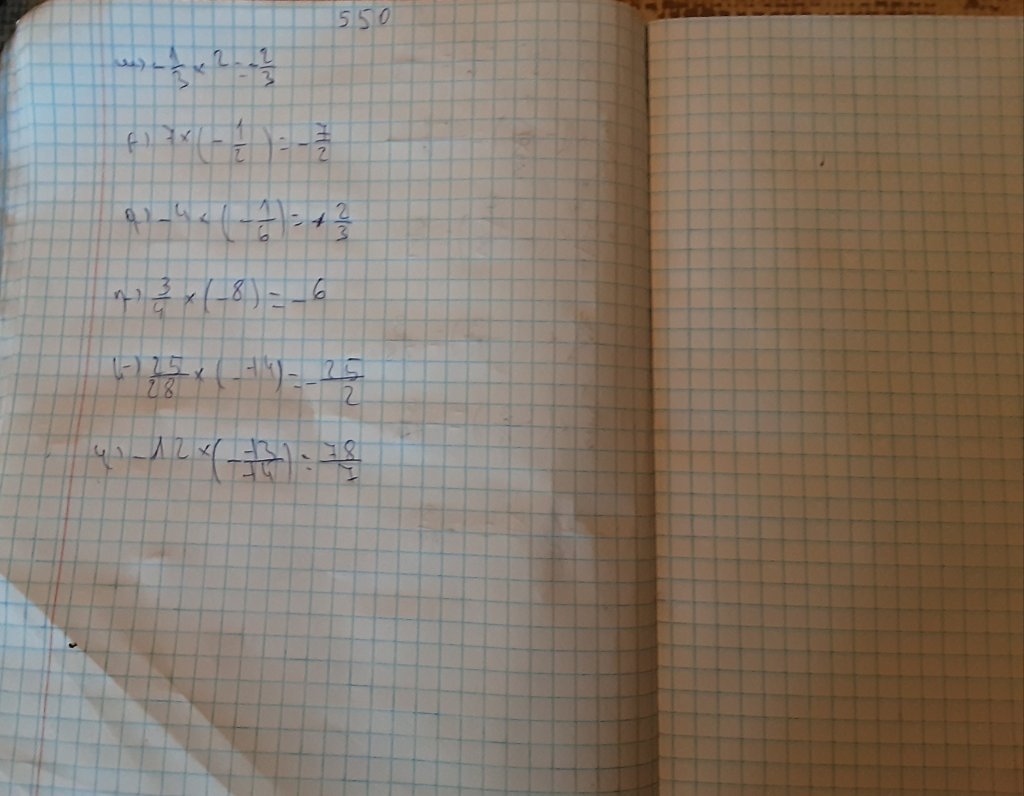 550
ա) -1/3 × 2 = -2/3
բ) 7 × (-1/2) = -7/2
գ) -4 × (-1/6) = +2/3
դ) 3/4 × (-8) = -6
ե) 25/28 × (-14) = -25/2
զ) -12 × (-13/14) = 78/7